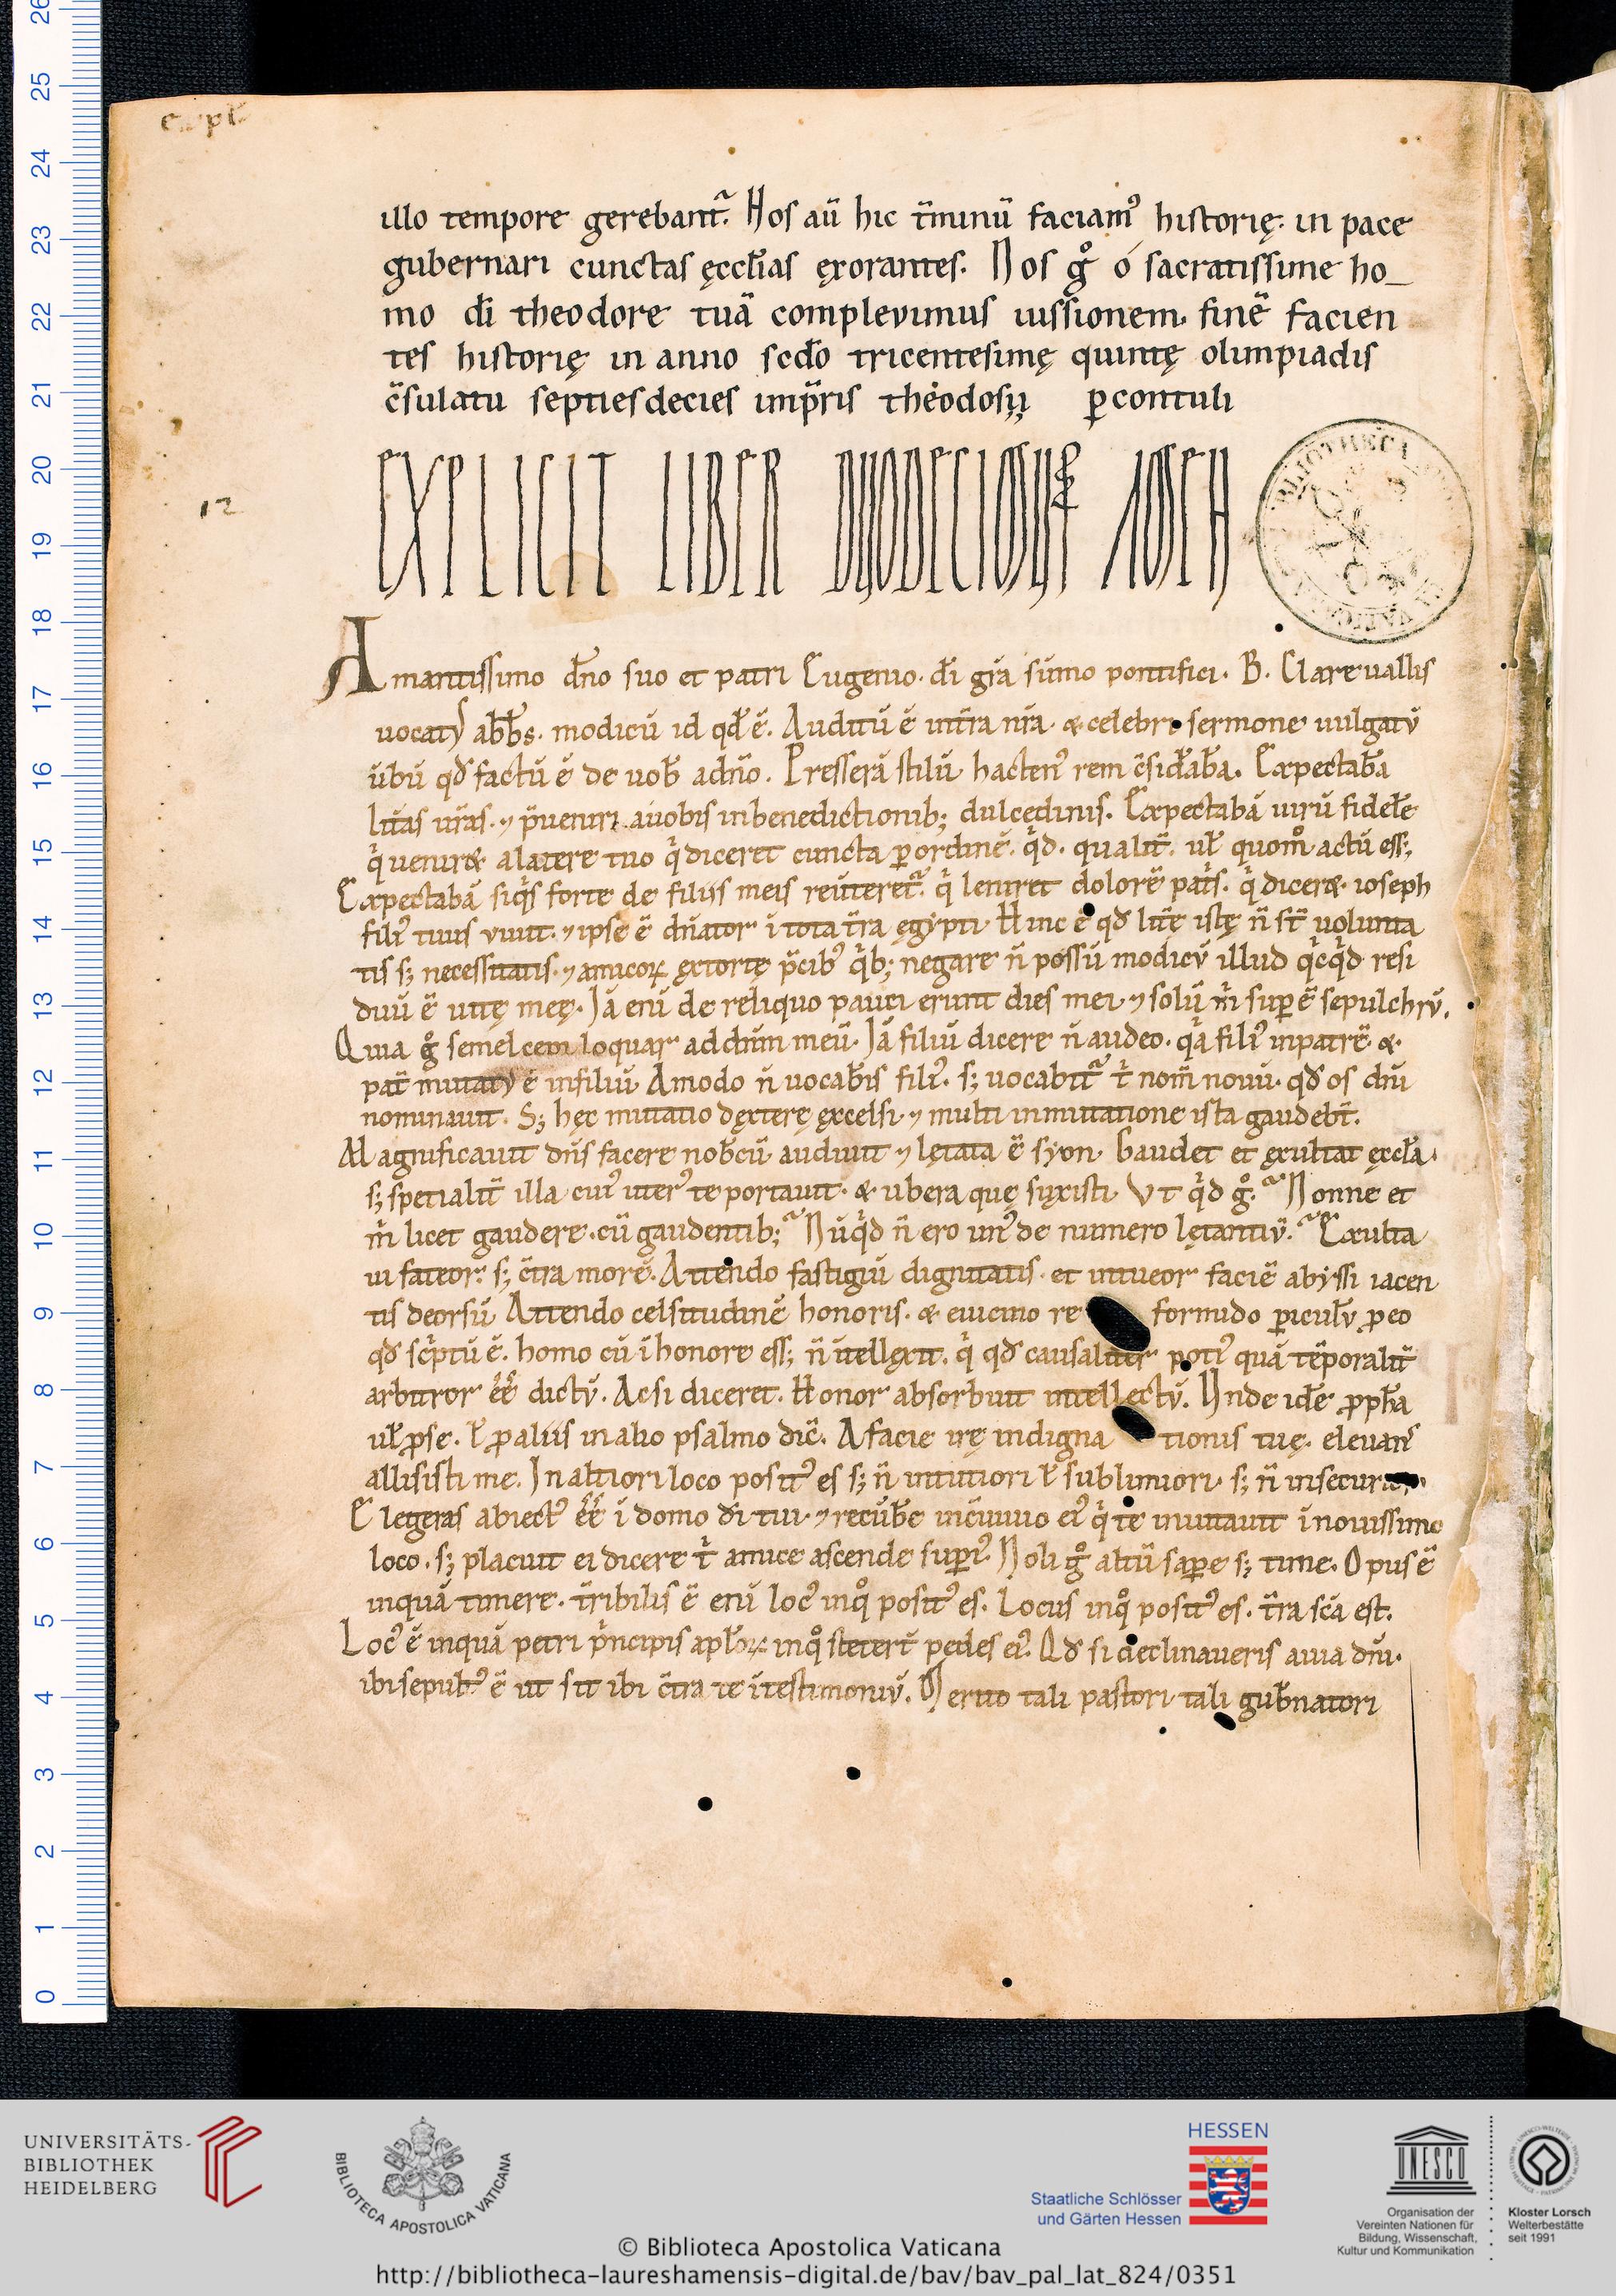 illo tempore gerebant᷑. Hos aū hic t̄minū faciam᷒ historię. in pace
gubernari cunctas ęccl̄ias ęxorantes. Nos gͦ ó sacratissime ho_
mo dī theodore tuā complevimus iussionem. finē facien
tes historię in anno scd̄o tricentesimę quintę olimpiadis
c̄sulatu septiesdecies imp̄ris theodosii ꝑcontuli
EXPLICIT LIBER DUODECIMUS AMEN
12
Amantissimo dn̄o suo et patri Eugenio. dī grā sūmo pontifici. B. Clareuallis
uocatꝰ abb̄s. modicū id qd̄ ē. Auditū ē in t̄ra nr̄a. & celebri sermone uulgatū
ūbū qd̄ factū ē de uob̄ a dn̄o. Presserā stilū hacten᷒ rem c̄sid̄ab̄a. Expectab̄a
lr̄as ur̄as. ⁊ p̄ueniri a uobis in benedictionib; dulcędinis. Expectabā uirū fidelē
qͥ uenir& a latere tuo qͥ diceret cuncta ꝑ ordinē. qͥd. qualit̄. ul̄ quomͦ actū ess;
Expectabā siqͥs forte de filiis meis reūteret᷑. qͥ leniret dolorē pat̄s. qͥ dicer&. ioseph
fili᷒ tuus viuit. ⁊ ipse ē dn̄ator ī tota t̄ra ęgypti. Hinc ē qd̄ lr̄ę istę n̄ st̄ uolunta
tis s; necessitatis. ⁊ amicoꝝ ęxtortę p̄cib᷒ qͥb; negare n̄ possū modicū illud qͥcqͥd resi
duū ē uitę meę. Iā enī de reliquo pauci erunt dies mei ⁊ solū m̄ suꝑ ē sepulchrū.
Quia gͦ semel cepi loquar ad dn̄m meū. Iā filiū dicere n̄ audeo. qͣ fili᷒ in patrē. &
pat̄ mutatꝰ ē in filiū. Amodo n̄ uocab̄is fili᷒. s; uocabit᷑ tͥ nom̄ nouū. qd̄ os dn̄i
nominauit. S; hęc mutatio dęxterę ęxcelsi. ⁊ multi in mutatione ista gaudeb̄t.
Magnificauit dn̄s facere nob̄cū. audiuit ⁊ lętata ē syon. Gaudet et ęxultat ęccl̄a.
s; spetialit̄ illa cui᷒ uter᷒ te portauit. & ubera quę suxisti. Vt qͥd gͦ. Nonne et
m̄ licet gaudere. cū gaudentib; Nūqͥd n̄ ero un᷒ de numero lętantiū. Exulta
ui fateor. s; c̄tra morē. Attendo fastigiū dignitatis. et intueor faciē abyssi iacen
tis deorsū. Attendo celsitudinē honoris. & e uicino re formido ꝑicul̄ū ꝓ eo
qd̄ scͥptū ē. homo cū ī honore ess; n̄ītellęxit. qͥ qd̄ causaliter poti᷒ quā tēporalit̄
arbitror ēē dictū. Ac si diceret. Honor absorbuit intellectū. Unde idē ꝓpħa
ul̄ ꝓ se. l̄ ꝓ aliis in alio psalmo dic̄. A facie irę indigna tionis tuę. eleuans
allisisti me. In altiori loco posit᷒ es s; n̄ in tutiori l̄ sublimiori. s; n̄ in securi
Elegeras abiect᷒ ēē ī domo dī tui. ⁊ recūb̄e in c̄uiuio ei᷒ qͥ te inuitauit ī nouissimo
loco. s; placuit ei dicere tͥ amice ascende suꝑi᷒. Noli gͦ altū saꝑe s; time. Opus ē
inquā timere. t̄ribilis ē enī loc᷒ in qͦ posit᷒ es. Locus in qͦ posit᷒ es. t̄ra sc̄a est.
Loc᷒ ē inquā petri pͥncipis apl̄oꝝ in qͦ stetert̄ pedes ei᷒. Qd̄ si declinaueris a uia dn̄i.
ibi sepult᷒ ē ut sit ibi c̄tra te ī testimoniū. Merito tali pastori tali gub̄natori
26
25
24
23
22
21
20
19
18
17
16
15
14
13
12
11
10
9
8
7
6
5
4
3
2
1
0
UNIVERSITÄTS-
BIBLIOTHEK
HEIDELBERG
BIBLIOTECA APOSTOLICA VATICANA
HESSEN
Staatliche Schlösser
und Gärten Hessen
UNESCO
Organisation der
Vereinten Nationen für
Bildung, Wissenschaft,
Kultur und Kommunikation
Kloster Lorsch
Welterbestätte
seit 1991
© Biblioteca Apostolica Vaticana
http://bibliotheca-laureshamensis-digital.de/bav/bav_pal_lat_824/0351